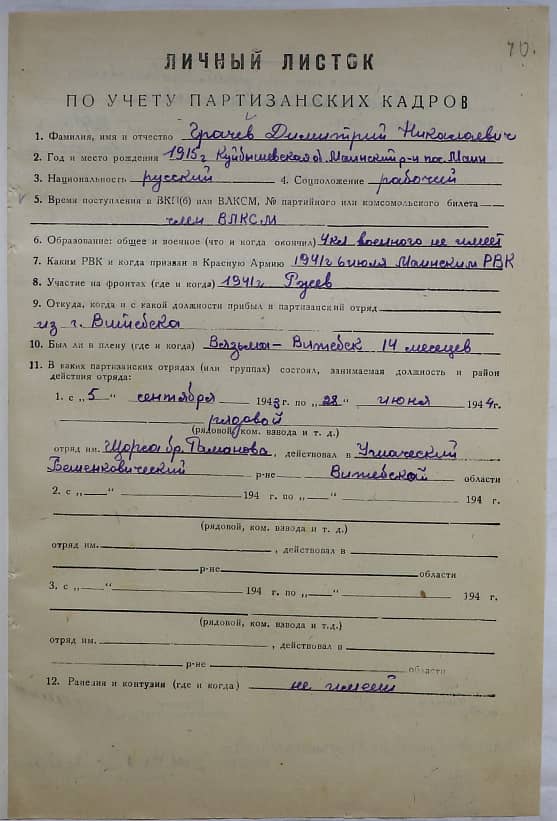 70.
ЛИЧНЫЙ ЛИСТОК
ПО УЧЕТУ ПАРТИЗАНСКИХ КАДРОВ
1. Фамилия, имя и отчество Грачев Димитрий Николаевич
2. Год и место рождения 1915 г Куйбышевская об. Маинский р-н пос. Маин
3. Национальность русский 4. Соцположение рабочий
5. Время поступления в ВКП(б) или ВЛКСМ, № партийного или комсомольского билета
член ВЛКСМ
6. Образование: общее и военное (что и когда окончил) 4 кл военного не имеет
7. Каким РВК и когда призван в Красную Армию 1941 г 6 июля Маинским РВК
8. Участие на фронтах (где и когда) 1941 г.
9. Откуда, когда и с какой должности прибыл в партизанский отряд
из г. Витебска
10. Был ли в плену (где и когда) Вязьма – Витебск 14 месецев
11. В каких партизанских отрядах (или группах) состоял, занимаемая должность и район
действия отряда:
1. с „5" сентября 1943 г. по „28" июня 1944 г.
рядовой
(рядовой, ком. взвода и т. д.)
отряд им. Щорса бр. , действовал в Ушаческий
Бешенковический р-не Витебской области
2. с „ " 194 г. по „ " 194 г.
(рядовой, ком. взвода и т. д.)
отряд им. , действовал в
р-не области
3. с „ " 194 г. по „ " 194 г.
(рядовой, ком. взвода и т.д.)
отряд им. , действовал в
р-не области
12. Ранения и контузии (где и когда) не имеет